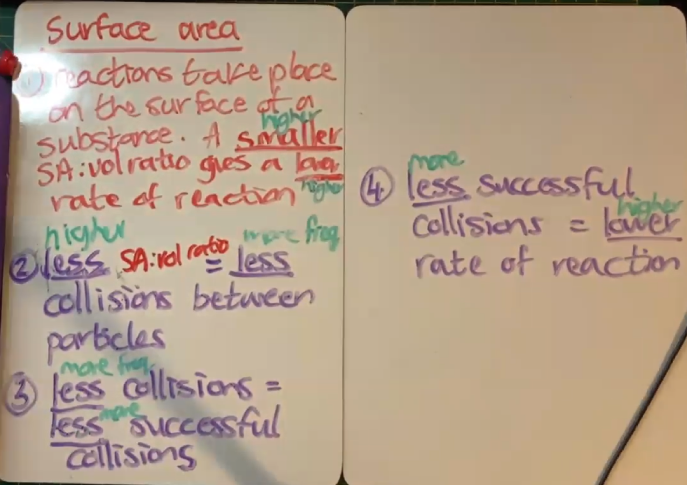 Surface area
① reactions take place
on the surface of a
higher
substance. A smaller
SA:vol ratio gives a lower
higher
rate of reaction
higher
more freq
② less SA:vol ratio = less
collisions between
particles
more freq.
③ less collisions =
more
less successful
collisions
more
④ less successful
higher
collisions = lower
rate of reaction